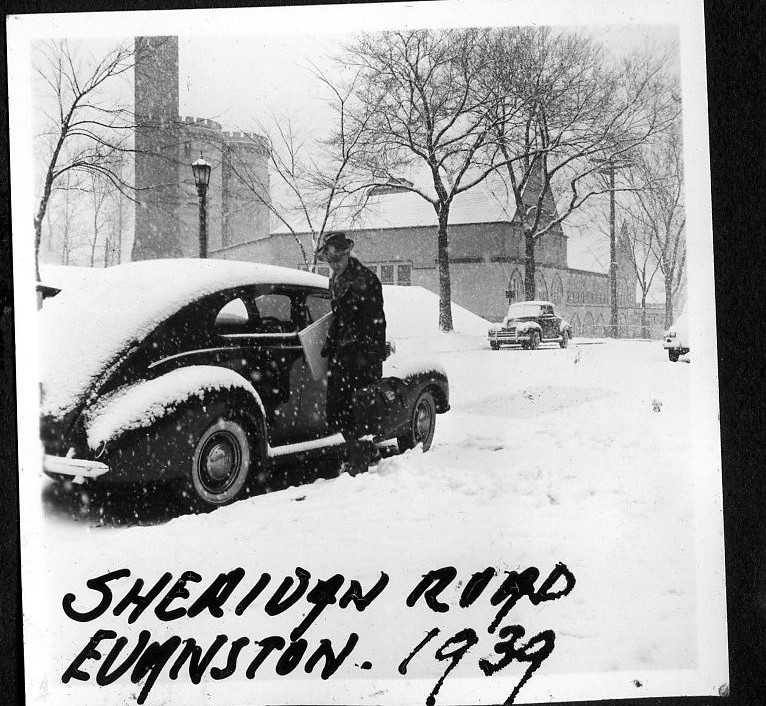 SHERIDAN ROAD
EVANSTON. 1939